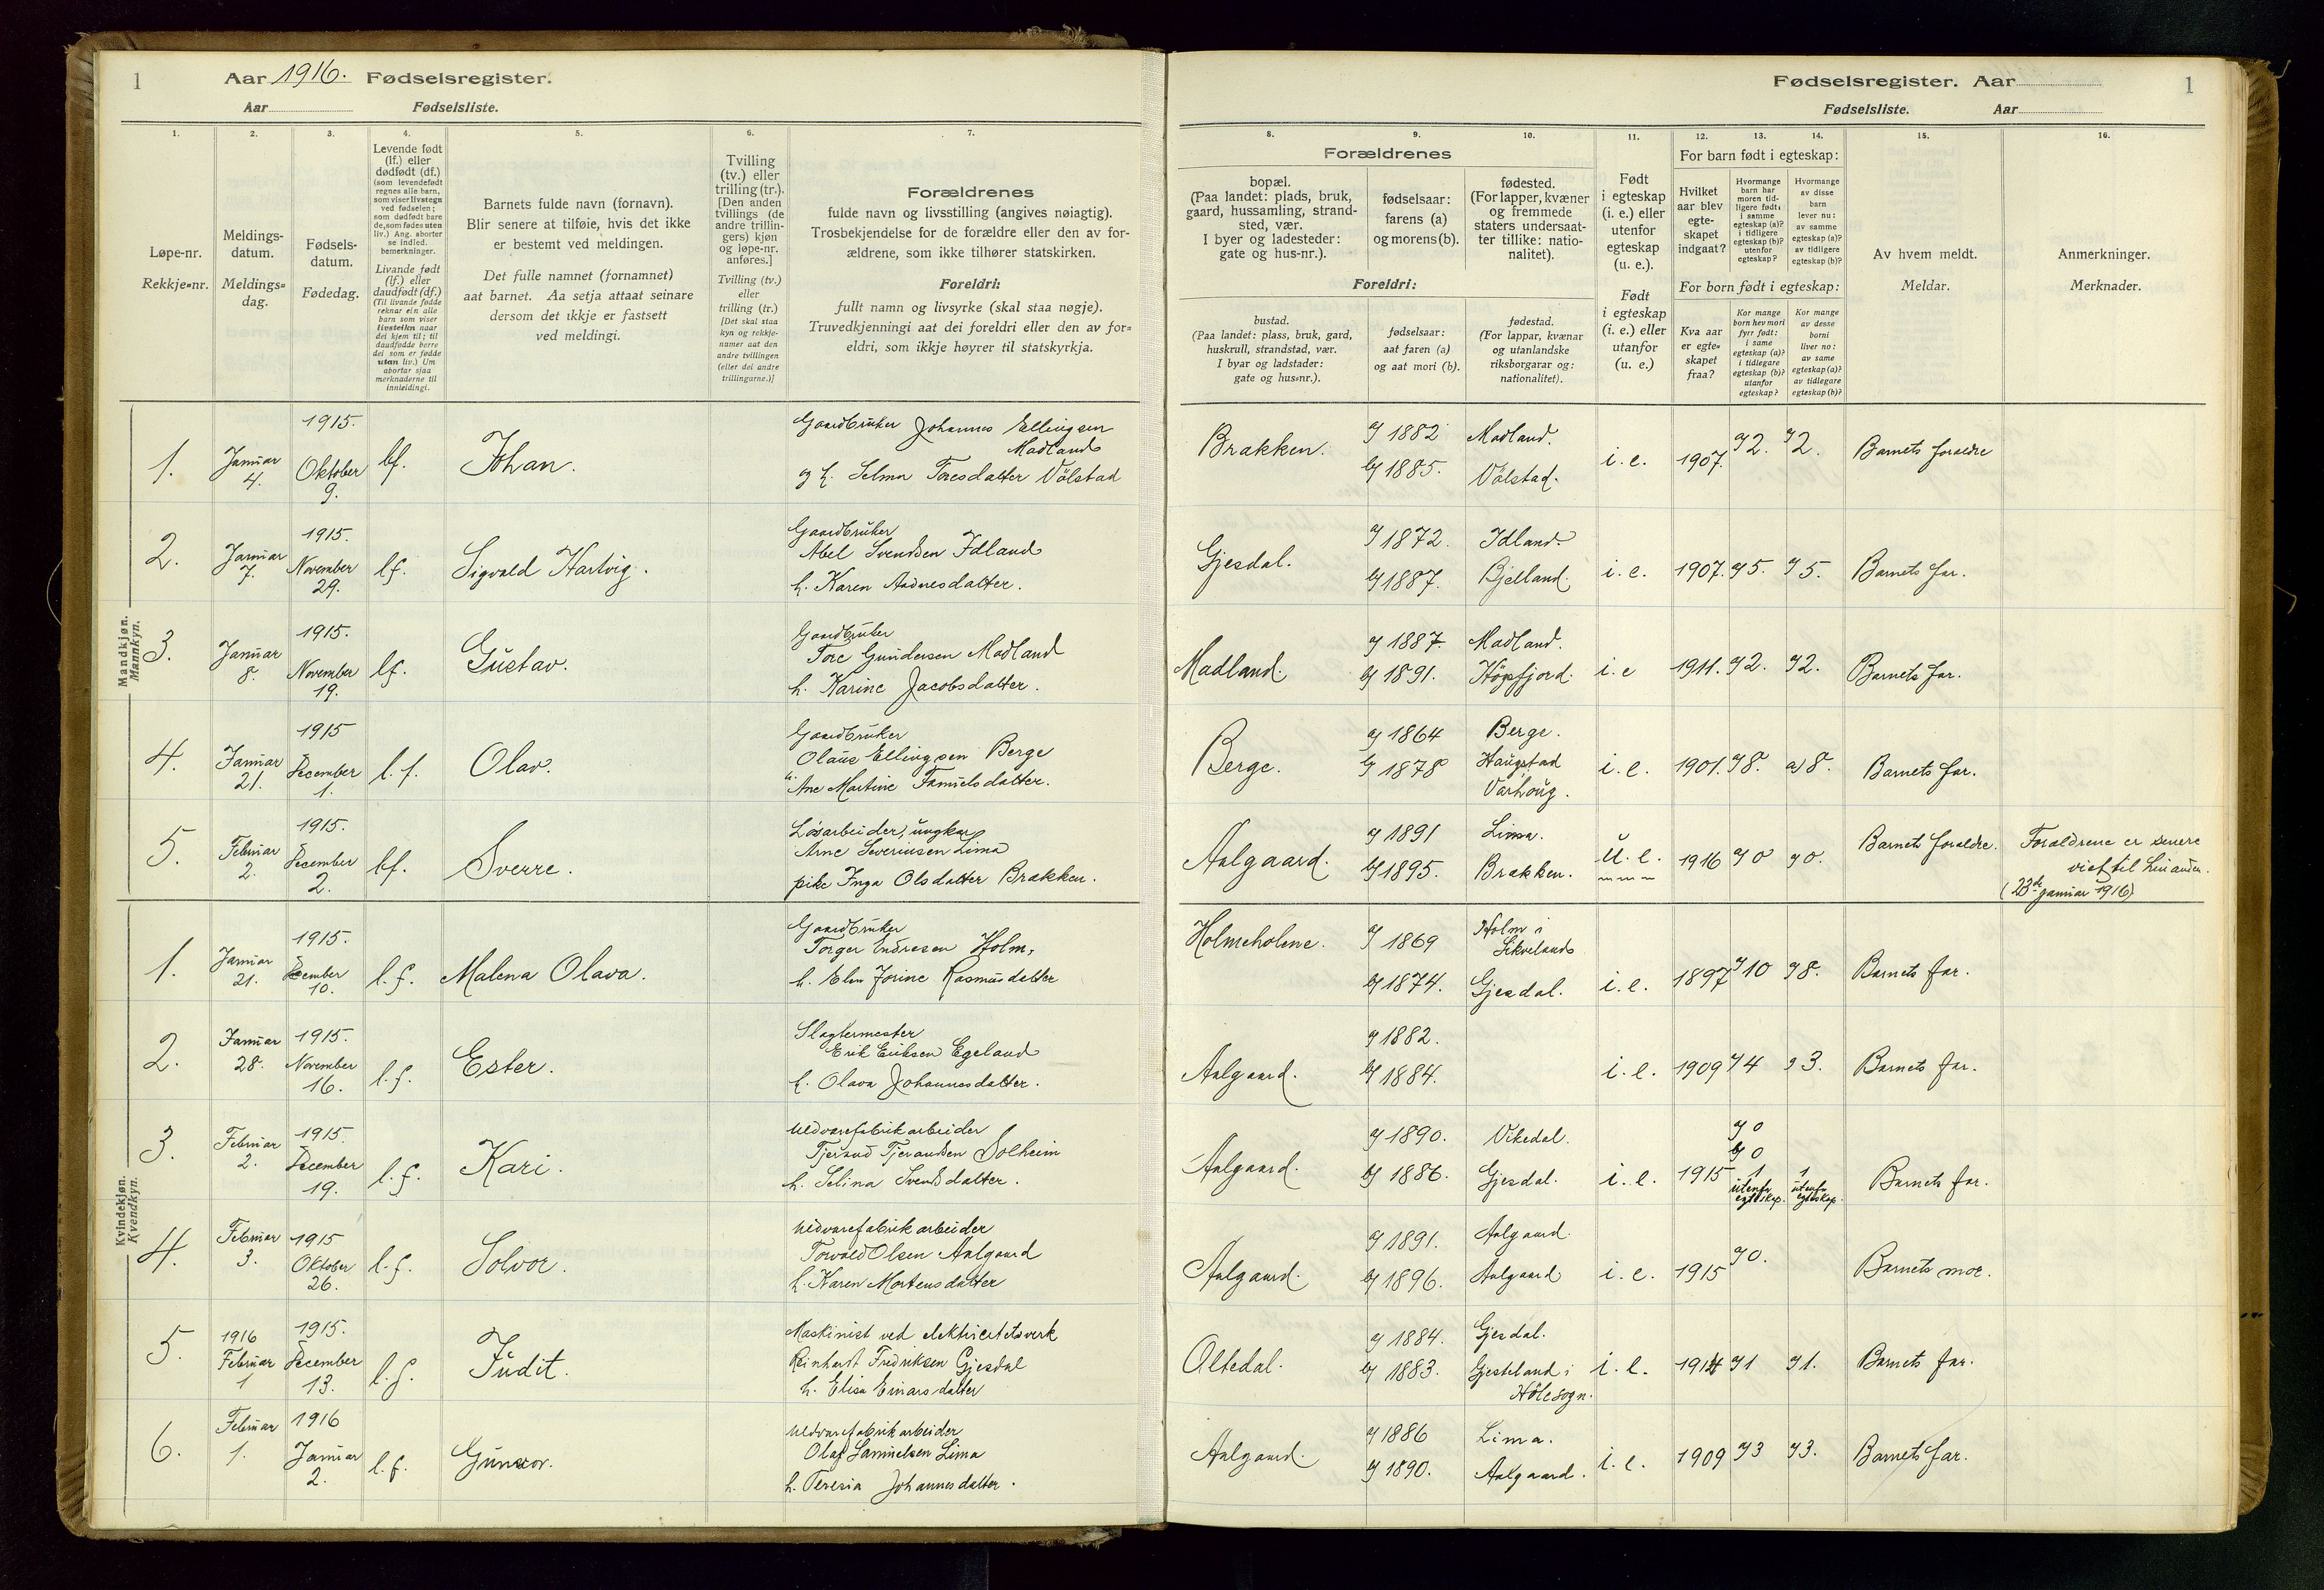 1
Aar 1916. Fødselsregister.
Aar Fødselsliste.
Fødselsregister. Aar
1
Fødselsliste. Aar
1. 2. 3. 4. 5. 6. 7.
8. 9. 10. 11. 12. 13. 14. 15. 16.
Løpe-nr.
Rekkje-nr.
Meldings-
datum.
Meldings-
dag.
Fødsels-
datum.
Fødedag.
Levende født
(lf.) eller
dødfødt (df.)
(som levendefødt
regnes alle barn,
som viser livstegn
ved fødselen;
som dødfødt bare
de, som fødes uten
liv.) Ang. aborter
se indled.
bemerkninger.
Livande født
(lf.) eller
daudfødt (df.)
(Til livande fødde
reknar ein alle
barn som viser
livsteikn naar
dei kjem til; til
daudfødde berre
dei som er fødde
utan liv.) Um
abortar sjaa
merknaderne til
innleidingi.
Barnets fulde navn (fornavn).
Blir senere at tilføie, hvis det ikke
er bestemt ved meldingen.
Det fulle namnet (fornamnet)
aat barnet. Aa setja attaat seinare
dersom det ikkje er fastsett
ved meldingi.
Tvilling
(tv.) eller
trilling (tr.).
[Den anden
tvillings (de
andre trillin-
gers) kjøn
og løpe-nr.
anføres.]
Tvilling (tv.)
eller
trilling (tr.)
[Det skal staa
kyn og rekkje-
numer aat den
andre tvillingen
(eller dei andre
trillingarne.)]
Forældrenes
fulde navn og livsstilling (angives nøiagtig).
Trosbekjendelse for de forældre eller den av for-
ældrene, som ikke tilhører statskirken.
Foreldri:
fullt namn og livsyrke (skal staa nøgje).
Truvedkjenningi aat dei foreldri eller den av for-
eldri, som ikkje høyrer til statskyrkja.
Forældrenes
bopæl.
(Paa landet: plads, bruk,
gaard, hussamling, strand-
sted, vær.
I byer og ladesteder:
gate og hus-nr.).
fødselsaar:
farens (a)
og morens (b).
fødested.
(For lapper, kvæner
og fremmede
staters undersaat-
ter tillike: natio-
nalitet).
Foreldri:
bustad.
(Paa landet: plass, bruk, gard,
huskrull, strandstad, vær.
I byar og ladstader:
gate og hus-nr.).
fødselsaar:
aat faren (a)
og aat mori (b).
fødestad.
(For lappar, kvænar
og utanlandske
riksborgarar og:
nationalitet).
Født
i egteskap
(i. e.) eller
utenfor
egteskap
(u. e.).
Født
i egteskap
(i. e.) eller
utanfor
(u. e.)
For barn født i egteskap:
Hvilket
aar blev
egte-
skapet
indgaat?
Hvormange
barn har
moren tid-
ligere født:
i samme
egteskap (a)?
i tidligere
egteskap (b)?
utenfor
egteskap?
Hvormange
av disse
barn
lever nu:
av samme
egteskap (a)?
av tidligere
egteskap (b)?
For born født i egteskap:
Kva aar
er egte-
skapet
fraa?
Kor mange
born hev mori
fyrr født:
i same
egteskap (a)?
i tidlegare
egteskap (b)?
utanfor
egteskap?
Kor mange
av desse
borni
liver no:
av same
egteskap (a)?
av tidlegare
egteskap (b)?
Av hvem meldt.
Meldar.
Anmerkninger.
Merknader.
Mandkjøn.
Mannkyn.
1. Januar 4. 1915. Oktober 9. lf. Johan.
Gaardbruker Johannes Ellingsen
Madland
og h. Selma Toresdatter Völstad
Brækken. a) 1882 Madland.
b) 1885. Völstad. i. e. 1907. a) 2. a) 2. Barnets forældre
2. Januar 7. 1915. November 29. lf. Sigvald Hartvig.
Gaardbruker
Abel Svendsen Idland
h. Karen Aadnesdatter.
Gjesdal. a) 1872. Idland.
b) 1887. Bjelland. i. e. 1907. a) 5. a) 5. Barnets far.
3. Januar 8. 1915. November 19. lf. Gustav.
Gaardbruker
Tore Gundersen Madland
h. Karine Jacobsdatter.
Madland. a) 1887. Madland.
b) 1891. Högsfjord. i. e 1911. a) 2. a) 2. Barnets far.
4. Januar 21. 1915 December 1. l. f. Olav.
Gaardbruker
Olaus Ellingsen Berge
h. Ane Martine Samuelsdatter.
Berge. a) 1864 Berge.
b) 1878 Haugstad
Varhoug. i. e. 1901. a) 8. a) 8. Barnets far.
5. Februar 2. 1915. December 2. lf. Sverre.
Lösarbeider, ungkar
Arne Severinsen Lima
pike Inga Olsdatter Brækken.
Aalgaard. a) 1891 Lima.
b) 1895. Brækken. u. e. 1916 a) 0 a) 0. Barnets forældre. Forældrene er senere
viet til hinanden.
(23de januar 1916)
Kvindekjøn.
Kvendkyn.
1. Januar 21. 1915. December 10. l. f. Malena Olava.
Gaardbruker
Torger Endresen Holm,
h. Elen Jorine Rasmusdatter
Holmeholene. a) 1869 Holm i
b) 1874. Gjesdal. i. e. 1897 a) 10 a) 8. Barnets far.
2. Januar 28. 1915. November 16. l. f. Ester.
Slagtermester
Erik Eriksen Egeland
h. Olava Johannesdatter.
Aalgaard. a) 1882.
b) 1884. i. e. 1909 a) 4 a) 3. Barnets far.
3. Februar 2. 1915. December 19. l. f. Kari.
Uldvarefabrikarbeider
Tjerand Tjerandsen Solheim
h. Selina Svendsdatter.
Aalgaard. a) 1890. Vikedal.
b) 1886. Gjesdal. i. e. 1915 a) 0
b) 0
1 utenfor egteskap. 1 utenfor egteskap. Barnets far.
4. Februar 3. 1915 Oktober 26. l. f. Solvor.
Uldvarefabrikarbeider
Torvald Olsen Aalgaard
h. Karen Mortensdatter
Aalgaard. a) 1891. Aalgaard.
b) 1896. Aalgaard i. e. 1915 a) 0. Barnets mor.
5. 1916 Februar 1 1915. December 13. l. f. Judit.
Maskinist ved elektricitetsverk
Reinhardt Fredriksen Gjesdal
h. Elisa Einarsdatter
Oltedal. a) 1884. Gjesdal.
b) 1883. Gjesteland i
Hölesogn. i. e. 1914 a) 1 a) 1. Barnets far.
6. Februar 1. 1916 Januar 2. l. f. Gunvor.
Uldvarefabrikarbeider
Olaf Samuelsen Lima
h. Teresia Johannesdatter.
Aalgaard. a) 1886 Lima.
b) 1890. Aalgaard. i. e. 1909 a) 3 a) 3. Barnets far.